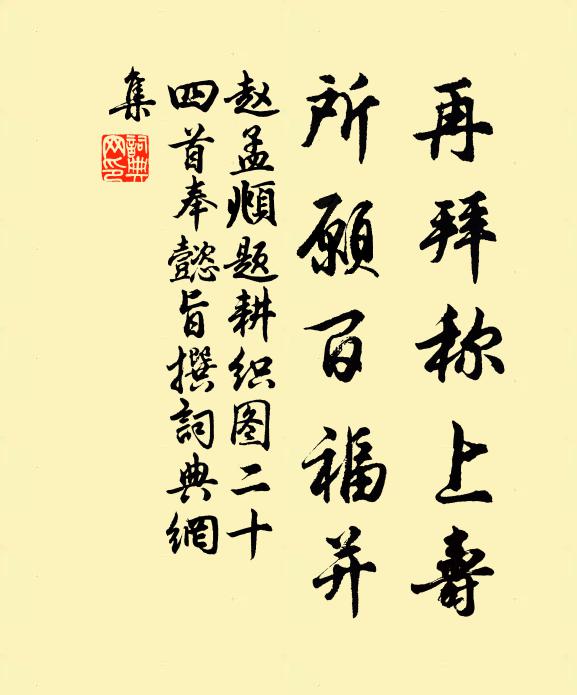 再拜称上寿
所愿百福并
赵孟頫题耕织图二十
四首奉懿旨撰詞典網
集
詞典
网印